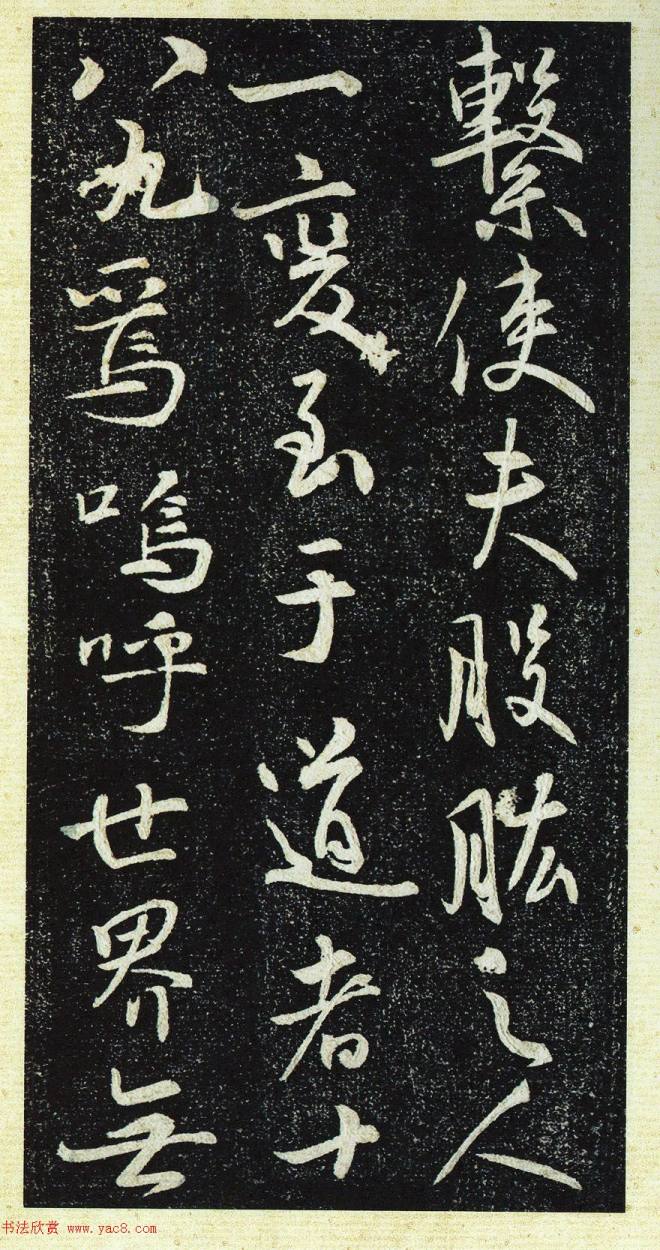 繫使夫股肱之人
一變至于道者十
八九焉嗚呼世界無
书法欣赏 www.yac8.com